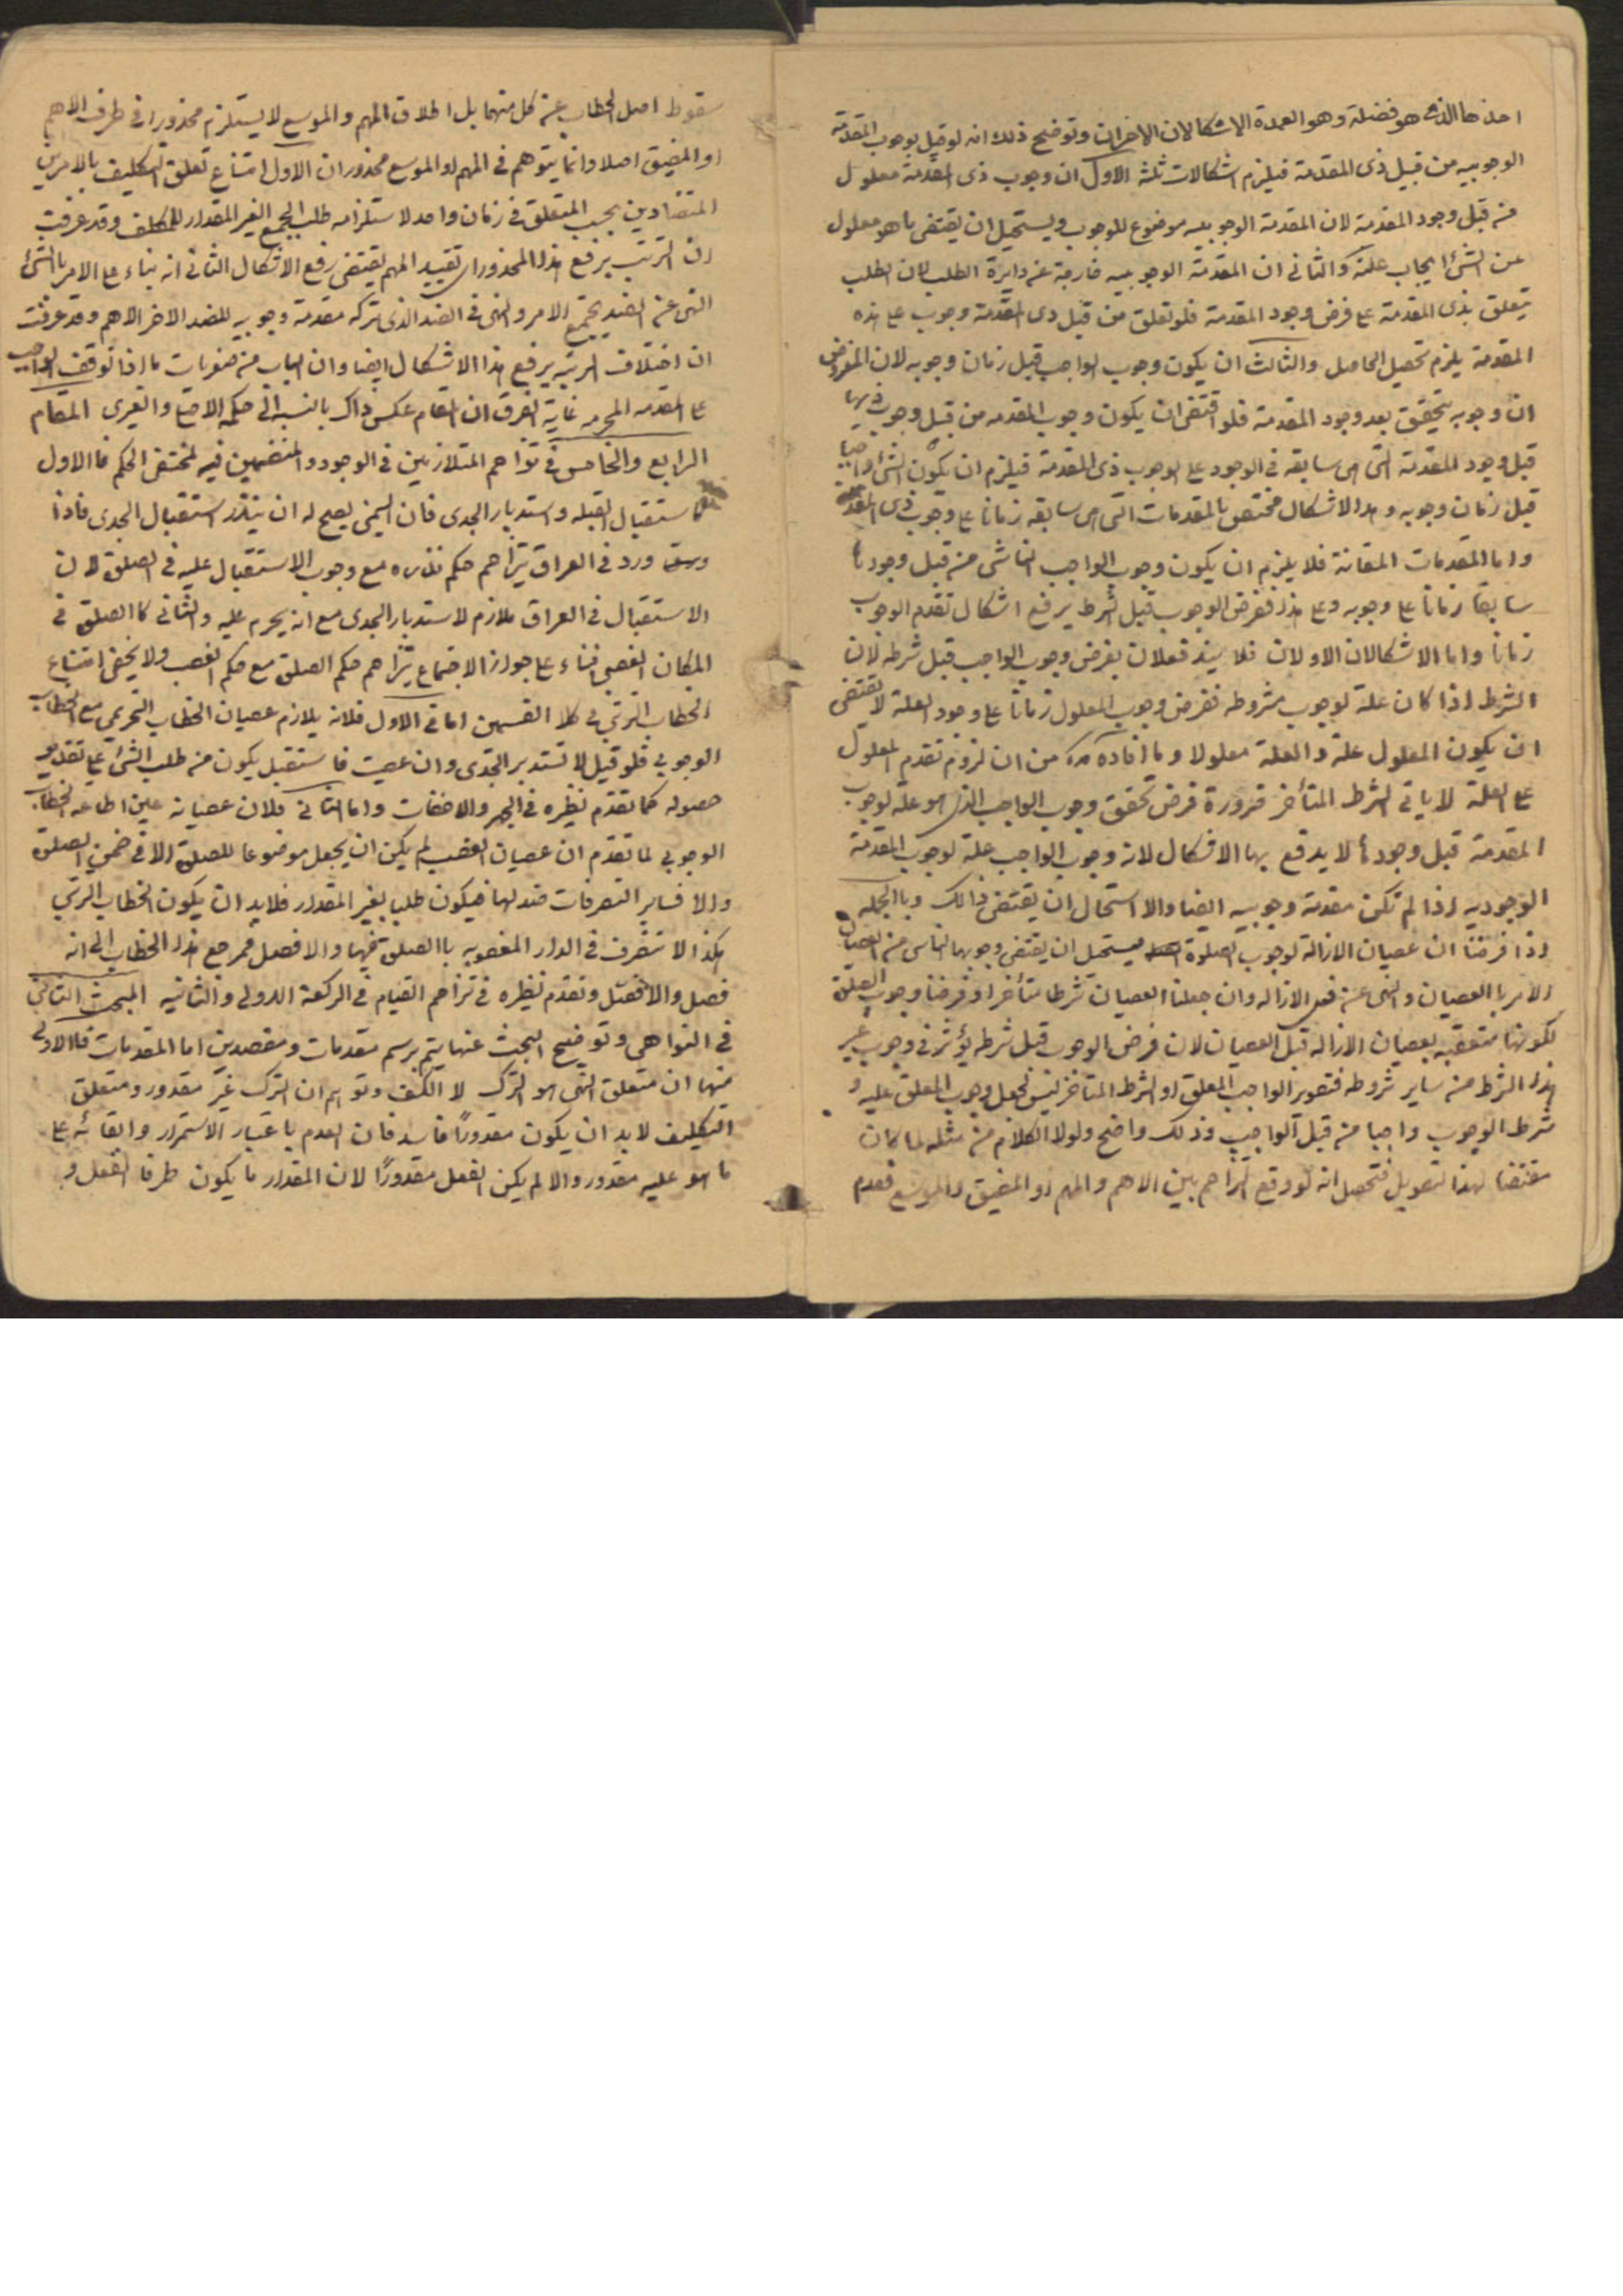 احدها الذی هو فضلة وهو العمدة الاشكالان الاخران وتوضيح ذلك انه لو قيل بوجوب المقدمة
الوجوبيه من قبيل ذی المقدمة فيلزم اشكالات ثلثة الاول ان وجوب ذی المقدمة معلول
من قبل وجود المقدمة لان المقدمة الوجوبيه موضوع للوجوب ويستحيل ان يقتضی ما هو معلول
عن الشیء ايجاب علته والثانی ان المقدمة الوجوبيه خارجة عن دايرة الطلب لان الطلب
يتعلق بذی المقدمة علی فرض وجود المقدمة فلو تعلق من قبل ذی المقدمة وجوب علی هذه
المقدمة يلزم تحصيل الحاصل والثالث ان يكون وجوب الواجب قبل زمان وجوبه لان المفروض
ان وجوبه يتحقق بعد وجود المقدمة فلو اقتضی ان يكون وجوب المقدمه من قبل وجوب ذيها
قبل وجود المقدمة التی هی سابقه فی الوجود علی الوجوب ذی المقدمة فيلزم ان يكون الشیء واجبا
قبل زمان وجوبه وهذا الاشكال مختص بالمقدمات التی هی سابقه زمانا علی وجوب ذی المقدمة
واما المقدمات المقارنة فلا يلزم ان يكون وجوب الواجب الناشی من قبل وجودها
سابقا زمانا علی وجوبه وعلی هذا ففرض الوجوب قبل شرطه يرفع اشكال تقدم الوجوب
زمانا واما الاشكالان الاولان فلا يندفعان بفرض وجوب الواجب قبل شرطه لان
الشرط اذا كان علة لوجوب مشروطه ففرض وجوب المعلول زمانا علی وجود العلة لا يقتضی
ان يكون المعلول علة والعلة معلولا وما افاده من ان لزوم تقدم المعلول
علی العلة لا ياتی الشرط المتأخر ضرورة فرض تحقق وجوب الواجب الذی هو علة لوجوب
المقدمة قبل وجودها لا يدفع بها الاشكال لانه وجوب الواجب علة لوجوب المقدمة
الوجوديه اذا لم تكن مقدمة وجوبيه ايضا والا استحال ان يقتضی ذالك وبالجمله
اذا فرضنا ان عصيان الازالة لوجوب الصلوة يستحيل ان يقتضی وجوبها الناشی من العصيان
الامر با العصيان والنهی عن فعل الازاله وان جعلنا العصيان شرطا متأخرا وفرضنا وجوب الصلوة
لكونها متعقبه بعصيان الازاله قبل العصيان لان فرض الوجوب قبل شرطه يؤثر فی وجوب غير
هذا الشرط من ساير شروطه فتصوير الواجب المعلق او الشرط المتاخر ليس لجعل وجوب المعلق عليه و
شرط الوجوب واجبا من قبل الواجب وذلك واضح ولولا الكلام من مثله لما كان
مقتضا لهذا لتعويل فتحصل انه لو وقع التزاحم بين الاهم والمهم او المضيق والموسع فعدم
سقوط اصل الخطاب عن كل منهما بل اطلاق المهم والموسع لا يستلزم محذورا فی طرف الاهم
او المضيق اصلا وانما يتوهم فی المهم او الموسع محذوران الاول امتناع تعلق التكليف بالامرين
المتضادين بحسب المتعلق فی زمان واحد لاستلزامه طلب الجمع الغير المقدور للمكلف وقد عرفت
ان الترتب يرفع هذا المحذور ای تقييد المهم يقتضی رفع الاشكال الثانی انه بناء علی الامر بالشیء
النهی عن الضد يجتمع الامر والنهی فی الضد الذی تركه مقدمة وجوبيه للضد الاخر الاهم وقد عرفت
ان اختلاف الرتبه يرفع هذا الاشكال ايضا وان الباب من صغريات ما اذا توقف الواجب
علی المقدمه المحرمه غاية الفرق ان المقام عكس ذاك بالنسبه الی حكمه الاصلی والغيری المقام
الرابع والخامس فی تزاحم المتلازمين فی الوجود والمنضمين فيه لمختص الحكم فا الاول
كا ستقبال القبله واستدبار الجدی فان اليمنی يصح له ان ينذر استقبال الجدی فاذا
ورد فی العراق يتزاحم حكم نذره مع وجوب الاستقبال عليه فی الصلوة لان
الاستقبال فی العراق ملازم لاستدبار الجدی مع انه يحرم عليه والثانی كا الصلوة فی
المكان الغصبی بناء علی جواز الاجتماع يتزاحم حكم الصلوة مع حكم الغصب ولا يخفی امتناع
الخطاب الترتبی فی كلا القسمين اما فی الاول فلانه يلازم عصيان الخطاب التحريمی مع الخطاب
الوجوبی فلو قيل لا تستدبر الجدی وان عصيت فاستقبل يكون من طلب الشیء علی تقدير
حصوله كما تقدم نظيره فی الجهر والاخفات واما الثانی فلان عصيانه عين اطاعه الخطاب
الوجوبی لما تقدم ان عصيان الغصب لم يكن ان يجعل موضوعا للصلوة الا فی ضمن الصلوة
والا فساير التصرفات ضد لها فيكون طلبا بغير المقدور فلابد ان يكون الخطاب الترتبی
هكذا لا تتصرف فی الدار المغصوبه با الصلوة فيها والا فصل فمرجع هذا الخطاب الی انه
فصل والا فصل وتقدم نظيره فی تزاحم القيام فی الركعة الاولی والثانيه المبحث الثانی
فی النواهی وتوضيح البحث عنها يتم برسم مقدمات ومقصدين اما المقدمات فالاولی
منها ان متعلق النهی هو الترك لا الكف وتوهم ان الترك غير مقدور ومتعلق
التكليف لابد ان يكون مقدوراً فاسد فان العدم باعتبار الاستمرار وابقائه علی
ما هو عليه مقدور والا لم يكن الفعل مقدورًا لان المقدور ما يكون طرفا الفعل و